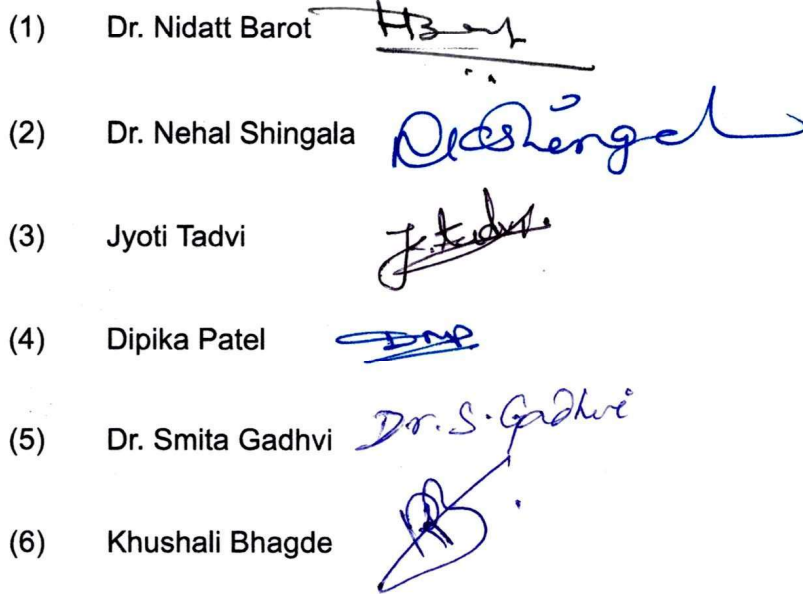 (1) Dr. Nidatt Barot
(2) Dr. Nehal Shingala
(3) Jyoti Tadvi
(4) Dipika Patel DMP
(5) Dr. Smita Gadhvi Dr. S. Gadhvi
(6) Khushali Bhagde